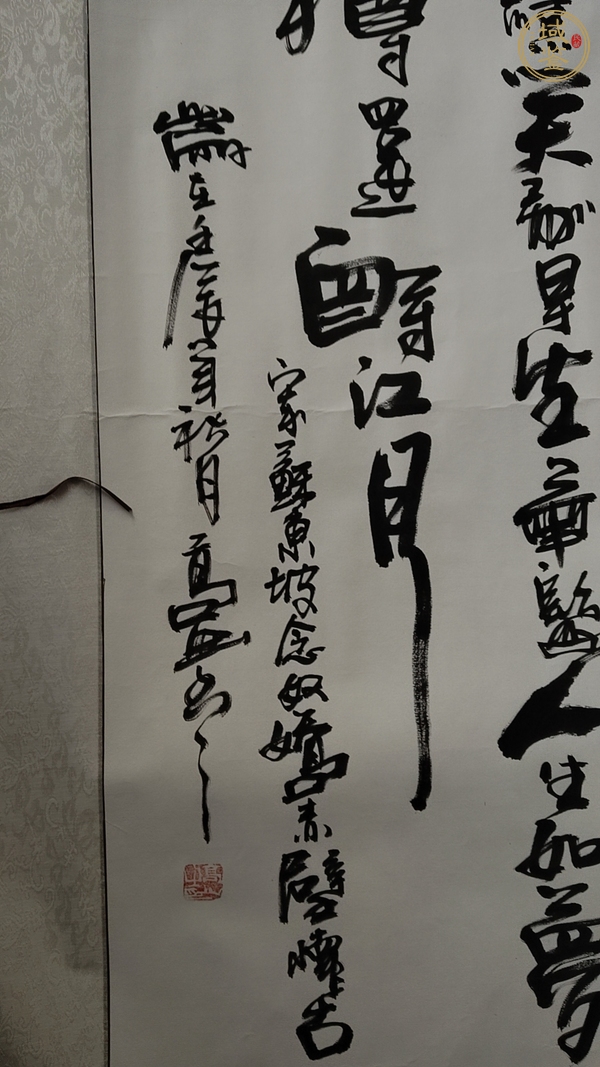 應笑我早生華髮人生如夢
樽還酹江月
宋蘇東坡念奴嬌赤壁懷古
歲在月高書
域鉴